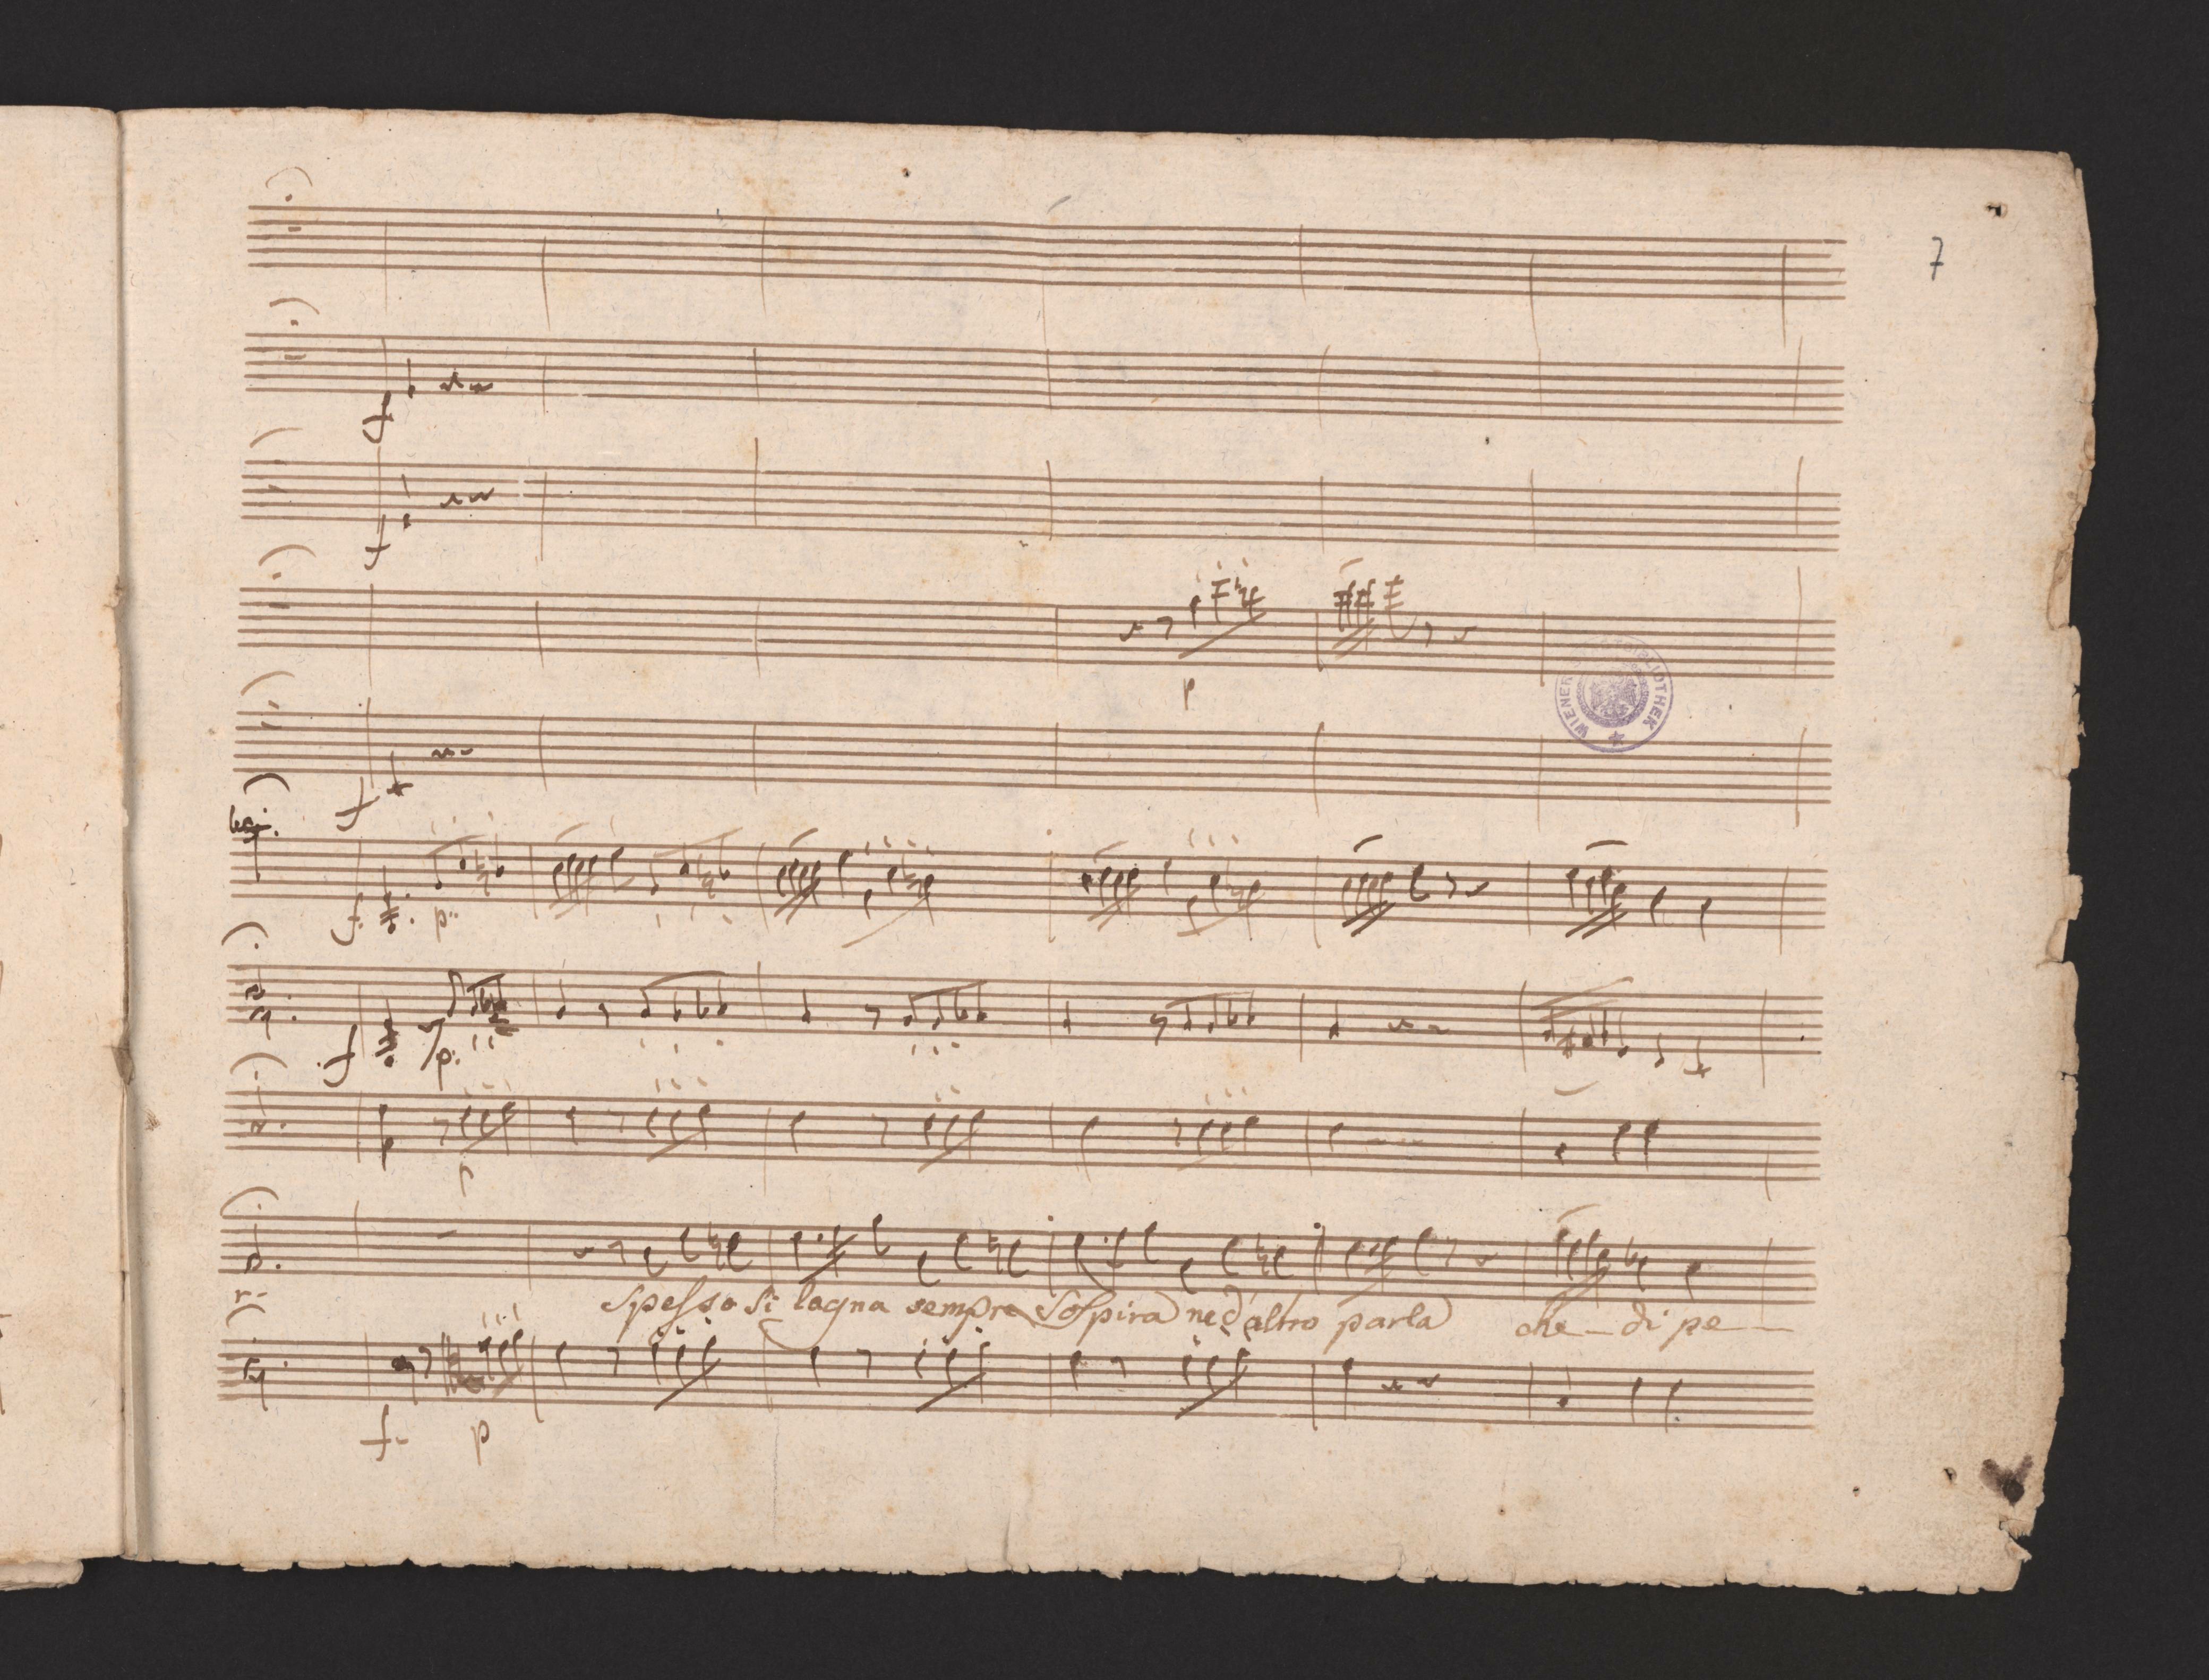 7
f
f
p
WIENER BIBLIOTHEK
f
f. p.
f p.
p
r-
Spesso si lagna sempre Sospira ne d'altro parla che - di pe -
f. p